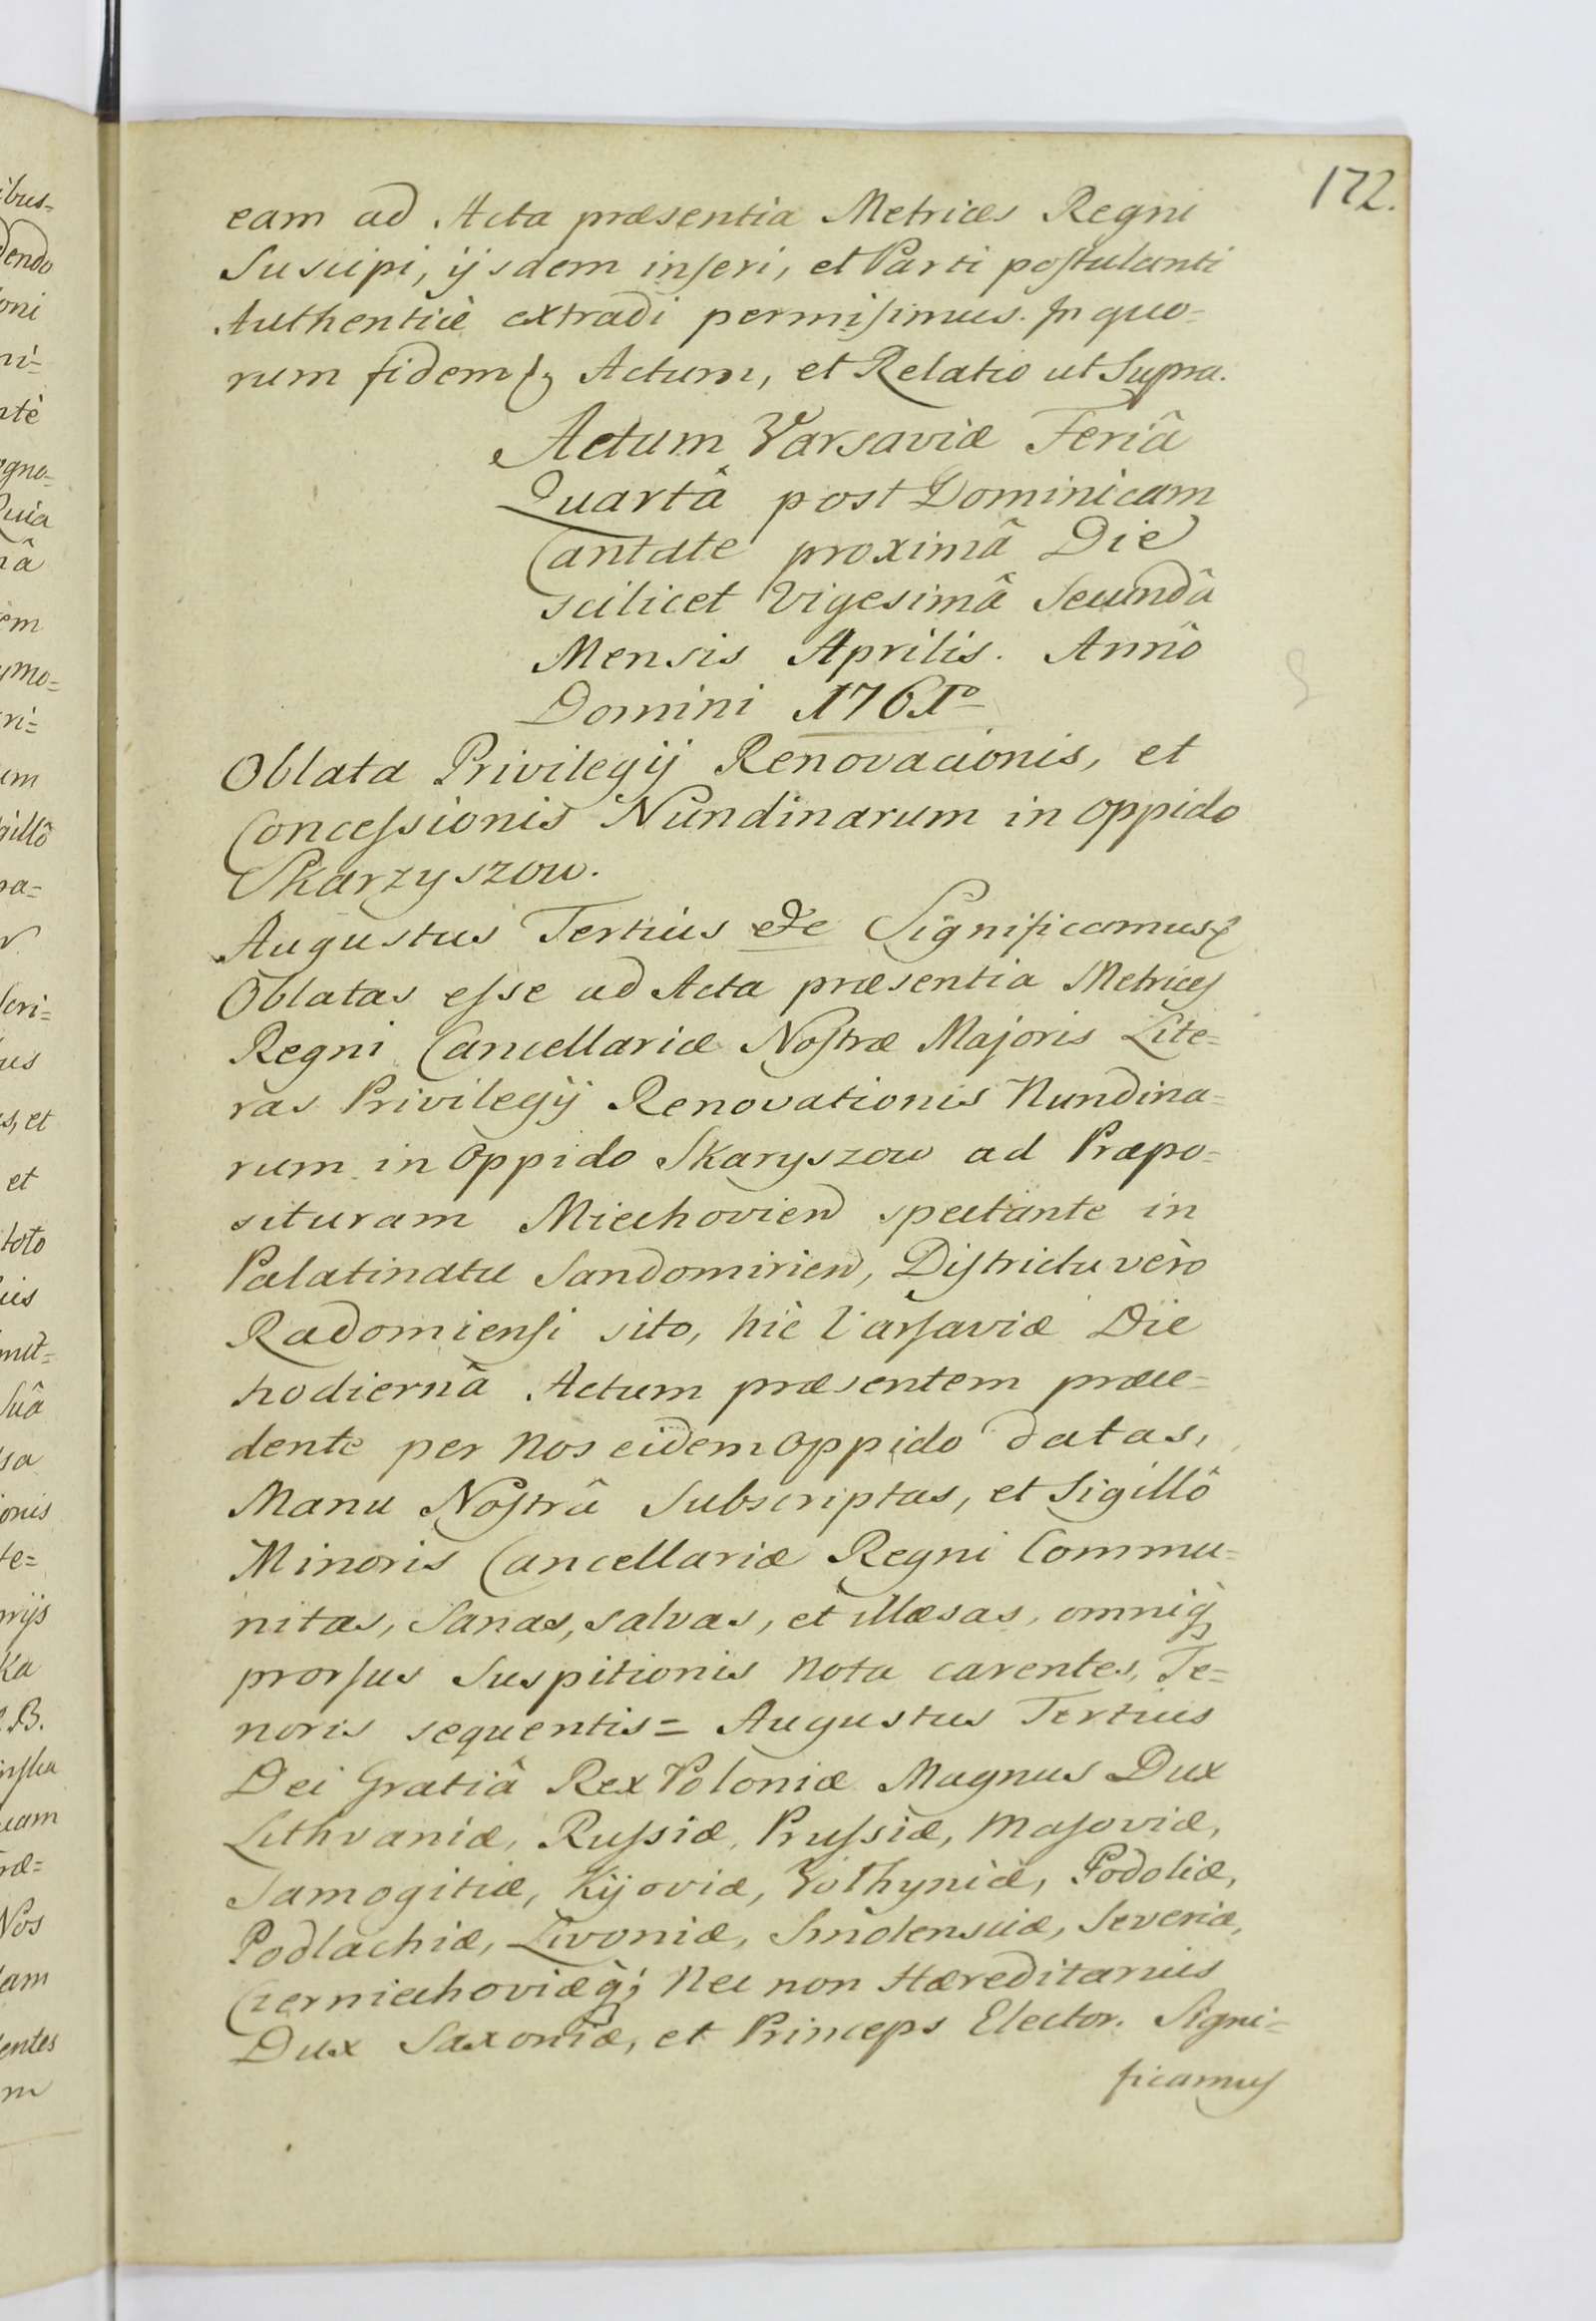 172.
eam ad Acta præsentia Metrices Regni
Suscipi, ijsdem inseri, et Parti postulanti
Authenticè extradi permisimus. In quo=
rum fidem &c Actum, et Relatio ut Supra.
Actum Varsaviæ Feriâ
Quartâ post Dominicam
Cantate proximâ Die
scilicet Vigesimâ Secundâ
Mensis Aprilis. Annô
Domini 1761º
Oblata Privilegij Renovacionis, et
Concessionis Nundinarum in oppido
Skarzyszow.
Augustus Tertius &c Significamus &
Oblatas esse ad Acta præsentia Metrices
Regni Cancellariæ Nostræ Majoris Lite=
ras Privilegij Renovationis Nundina=
rum in Oppido Skaryszow ad Præpo=
situram Miechovien spectante in
Palatinatu Sandomirien, Districtu verò
Radomiensi sito, hic Varsaviæ Die
hodiernâ Actum præsentem præce=
dente per Nos eidem Oppido datas,
Manu Nostrâ Subscriptas, et Sigillô
Minoris Cancellariæ Regni Commu=
nitas, Sanas, salvas, et illæsas, omniq;
prorsus Suspitionis Nota carentes, Te=
noris sequentis= Augustus Tertius
Dei Gratiâ Rex Poloniæ Magnus Dux
Lithvaniæ, Russiæ, Prussiæ, Masoviæ,
Samogitiæ, Kijoviæ, Volhyniæ, Podoliæ,
Podlachiæ, Livoniæ, Smolensciæ, Severiæ,
Czerniechoviæq; Nec non Hæreditarius
Dux Saxoniæ, et Princeps Elector. Signi=
ficamus
ibus=
dendo
oni
ni=
ntè
egno=
Quia
nâ
em
ymo=
ri=
um
gillô
pa=
r
scri=
us
s, et
et
toto
mit=
suâ
sa
ionis
te=
nijs
ka
B.
uam
ræ=
Nos
dam
entes
m